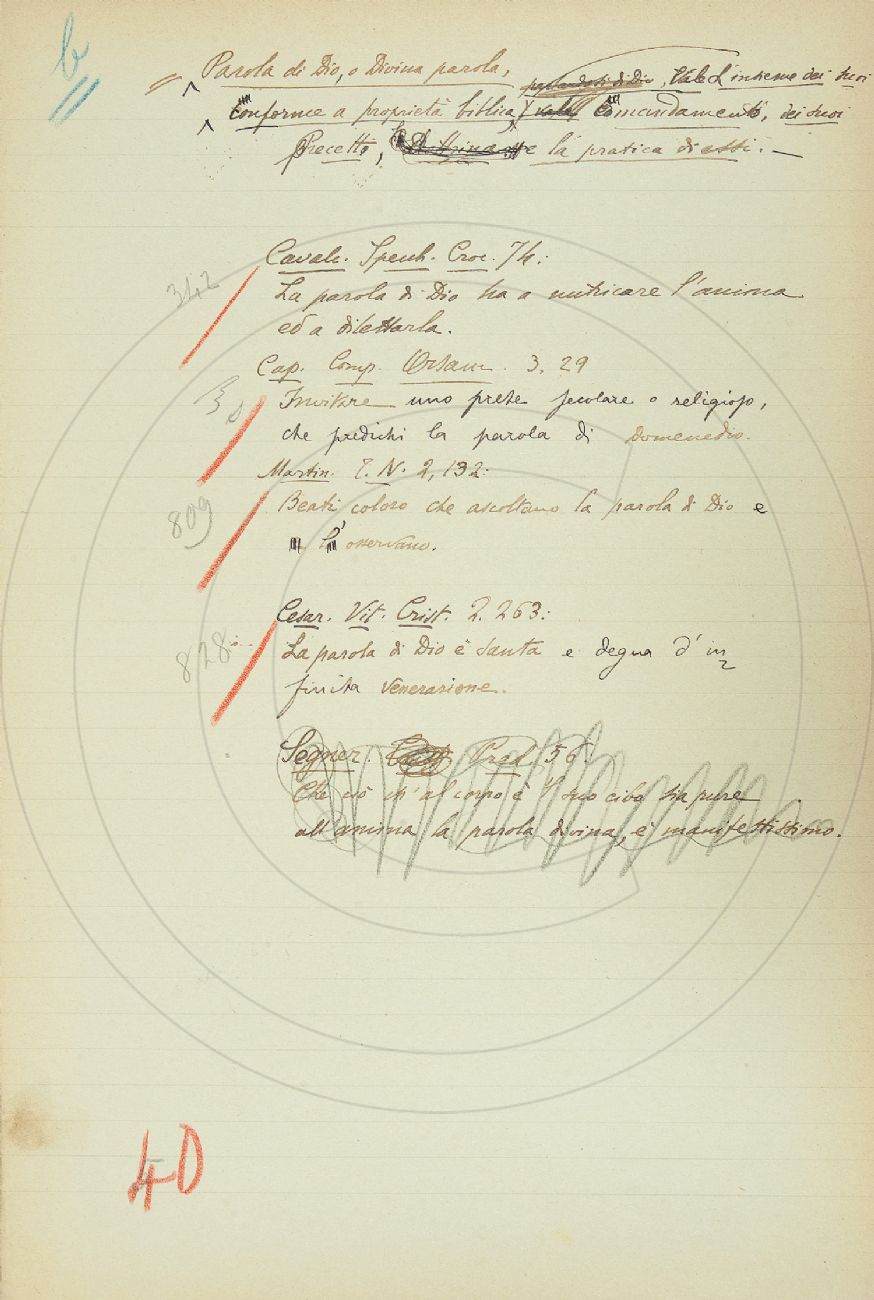 b
Parola di Dio, o Divina parola, parlandosi di Dio, vale L'insieme dei suoi
conforme a proprietà biblica, vale comandamenti, dei suoi
Precetti, Dottrina e la pratica di essi. —
342
Cavalc. Specch. Croc. 74:
La parola di Dio ha a nutricare l'anima
ed a dilettarla.
Cap. Comp. Orsam. 3. 29
Invitare uno prete secolare o religioso,
che predichi la parola di Domenedio.
Martin. T. N. 2, 132:
809
Beati coloro che ascoltano la parola di Dio e
l' osservano.
Cesar. Vit. Crist. 2. 263:
828
La parola di Dio è santa e degna d'in
finita venerazione.
Segner. Pred. 56:
Che ciò ch'al corpo è 'l suo cibo sia pure
all'anima la parola divina, è manifestissimo.
40